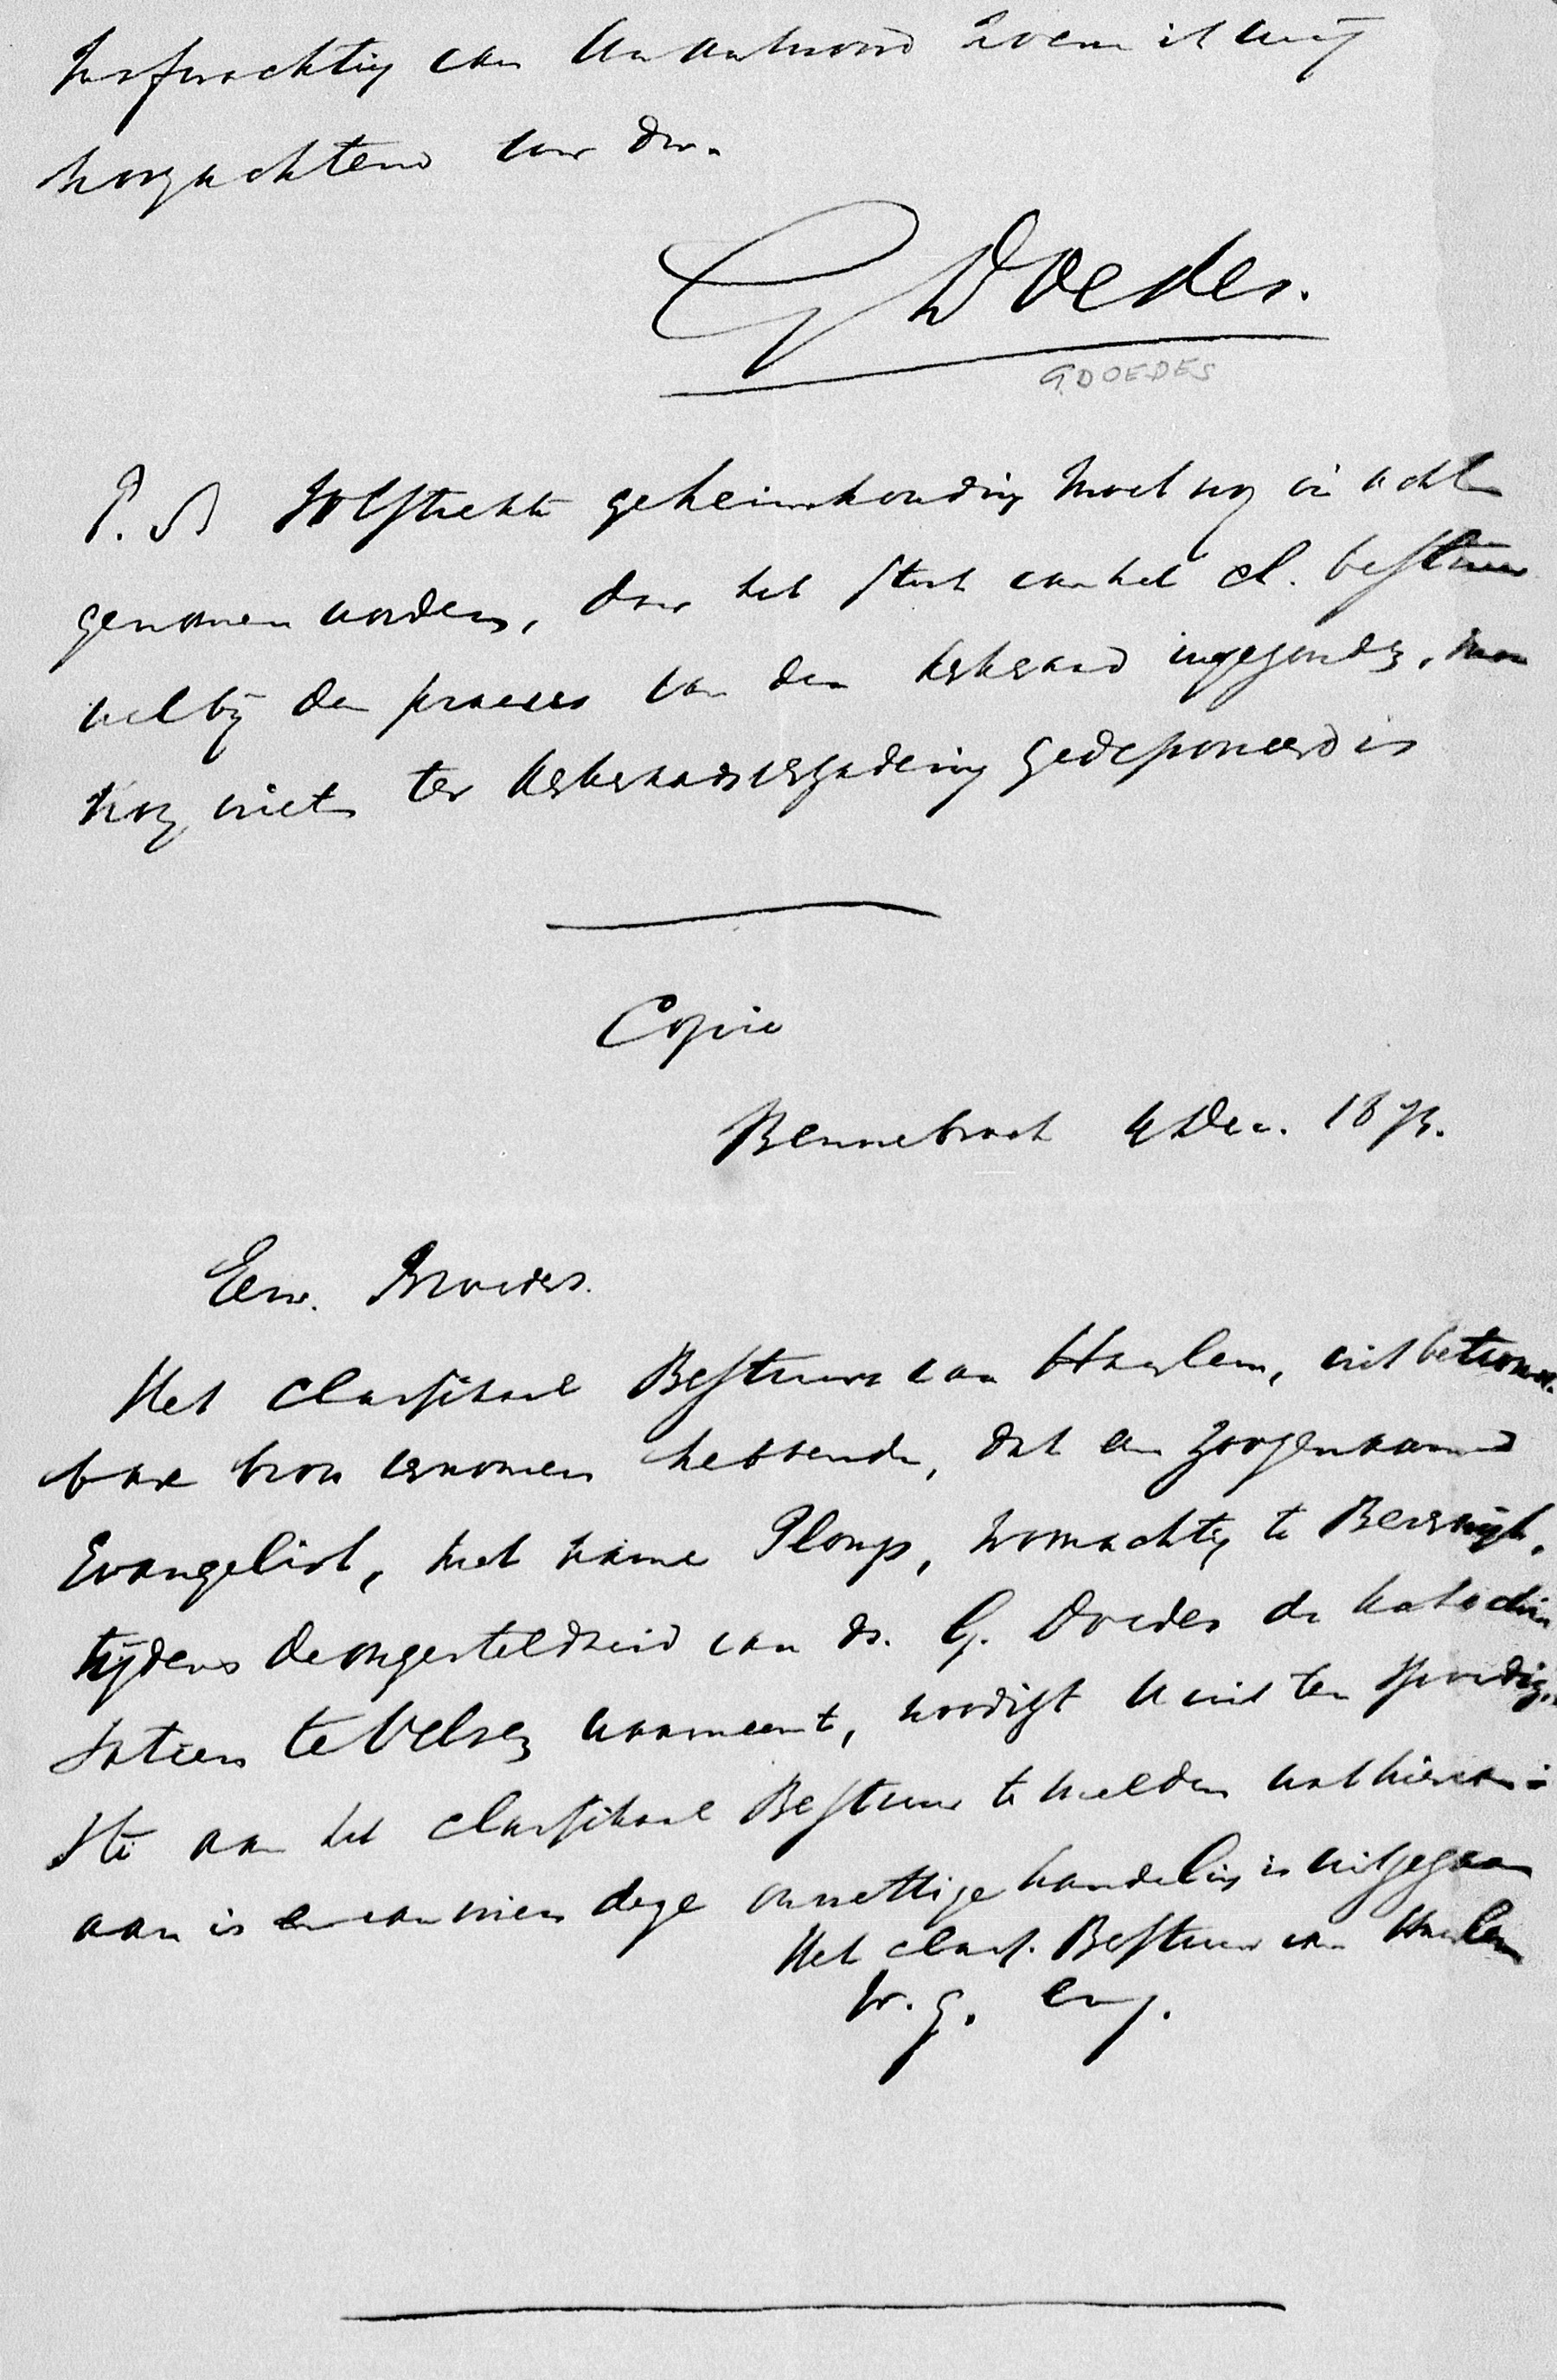 hoogachtend uw dw.
G Doedes.
G. DOEDES
P.S Volstrekte geheimhouding moet nog in acht
genomen worden, daar het stuk van het cl. bestuur
wel bij den praeses van den kerkeraad ingezonden, maar
nog niet ter kerkeraadsvergadering gedeponeerd is
Copie
Bennebroek 4 Dec. 1873.
Eerw. Broeders.
Het classikaal Bestuur van Haarlem, uit betrouw-
bare bron vernomen hebbende, dat een zoogenaamd
Evangelist, met name Ploup, woonachtig te Beverwijk,
tijdens de ongesteldheid van ds. G. Doedes de katechi
satien te Velsen waarneemt, noodigt U uit ten spoedig-
ste aan het classikaal Bestuur te melden wat hiervan
aan is en van wien deze onwettige handeling is uitgegaan
Het class. Bestuur van Haarlem
w.g. enz.